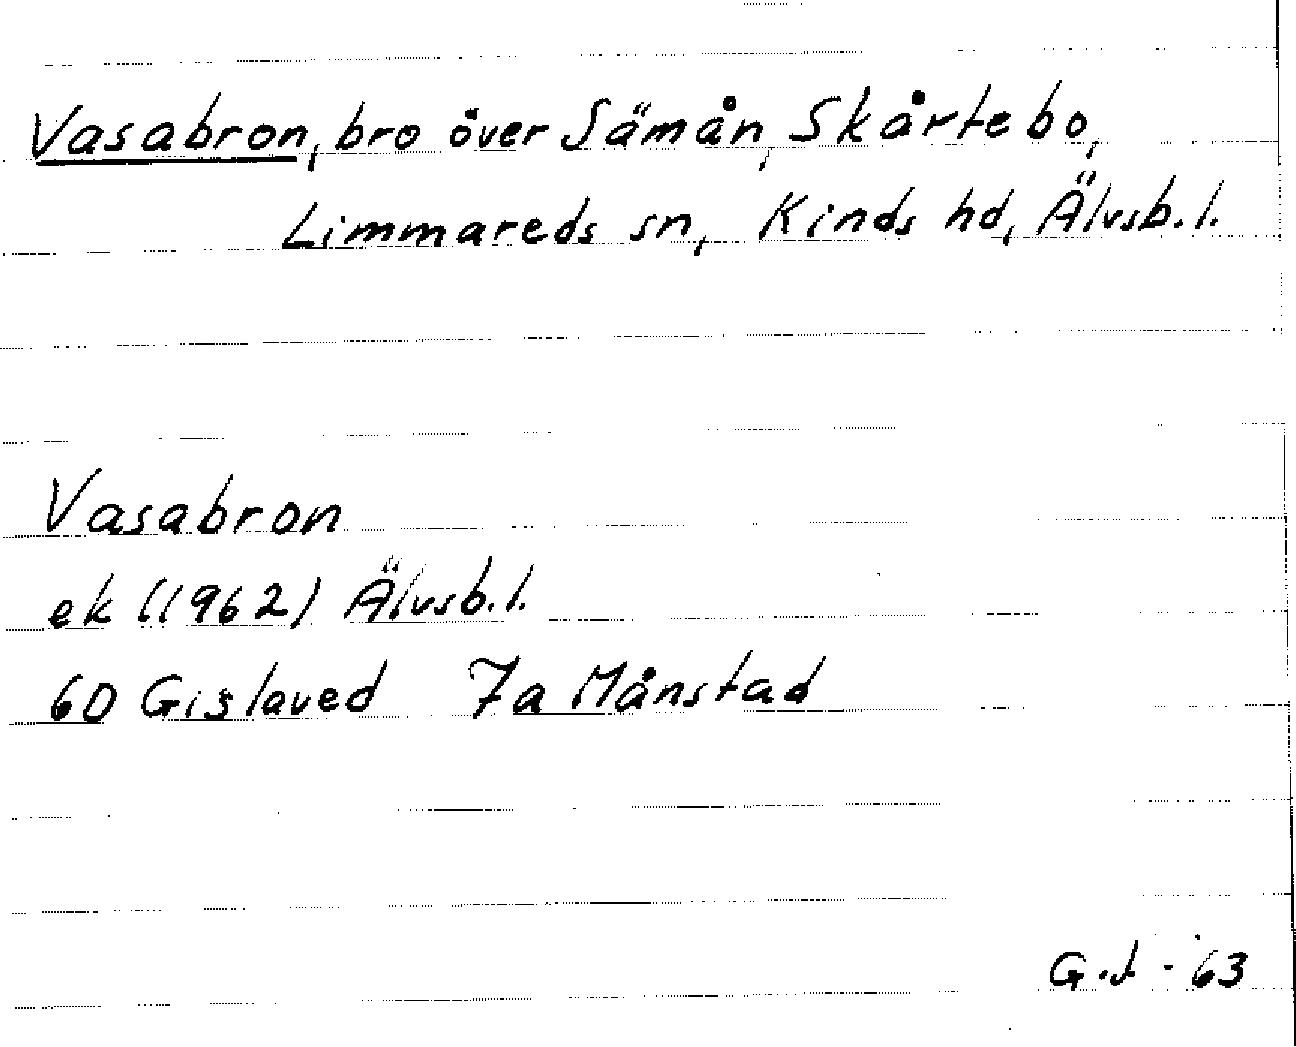 Vasabron, bro över Sämån, Skårtebo,
Limmareds sn, Kinds hd, Älvsb. l.
Vasabron
ek (1962) Älvsb. l.
6D Gislaved 7a Månstad
G.J - 63